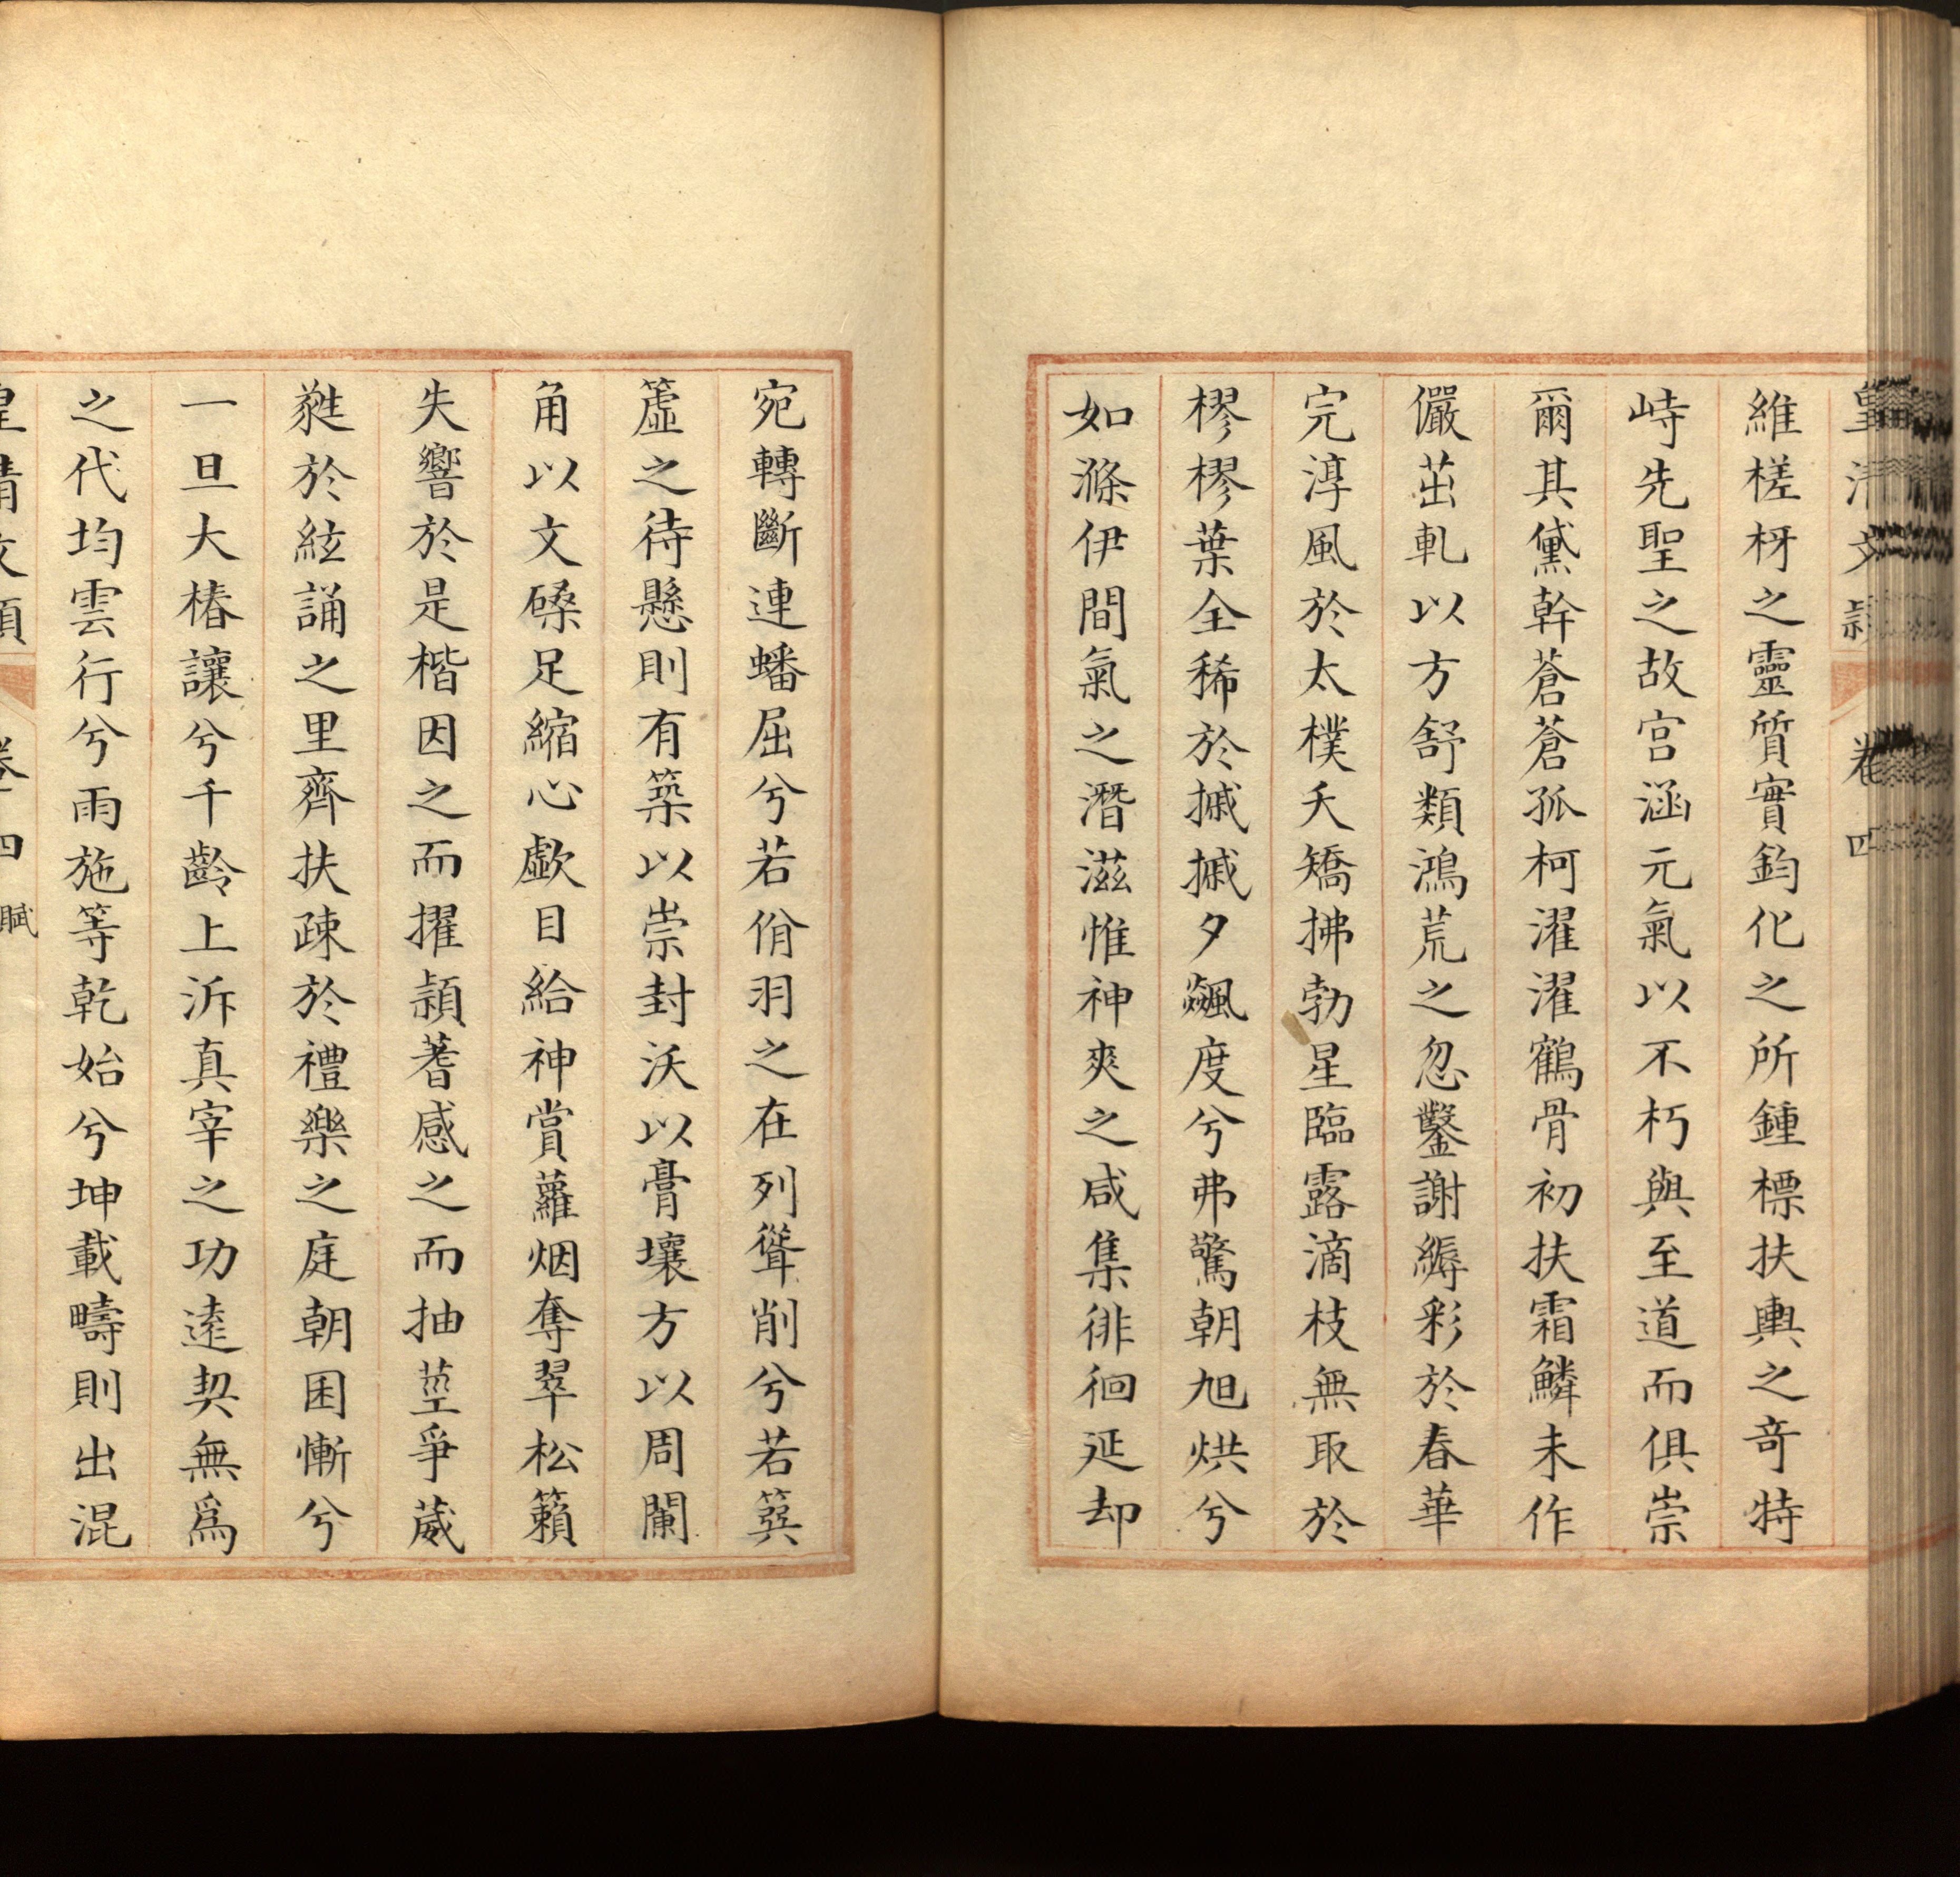 皇清文潁 卷四
維槎枒之靈質實鈞化之所鍾標扶輿之奇特
峙先聖之故宮涵元氣以不朽與至道而俱崇
爾其黛幹蒼蒼孤柯濯濯鶴骨初扶霜鱗未作
儼茁軋以方舒類鴻荒之忽鑿謝縟彩於春華
完淳風於太樸夭矯拂勃星臨露滴枝無取於
樛樛葉全稀於摵摵夕飈度兮弗驚朝旭烘兮
如滌伊間氣之潛滋惟神爽之咸集徘徊延却
宛轉斷連蟠屈兮若佾羽之在列聳削兮若簨
簴之待懸則有築以崇封沃以膏壤方以周闌
角以文磉足縮心歔目給神賞蘿烟奪翠松籟
失響於是楷因之而擢頴蓍感之而抽莖爭葳
蕤於絃誦之里齊扶疎於禮樂之庭朝困慚兮
一旦大椿讓兮千齡上泝真宰之功逺契無爲
之代均雲行兮雨施等乾始兮坤載疇則出混
皇清文潁 卷四 賦